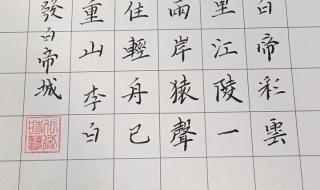 白帝彩雲
里江陵一
兩岸猿聲
住輕舟已
重山李白
發白帝城